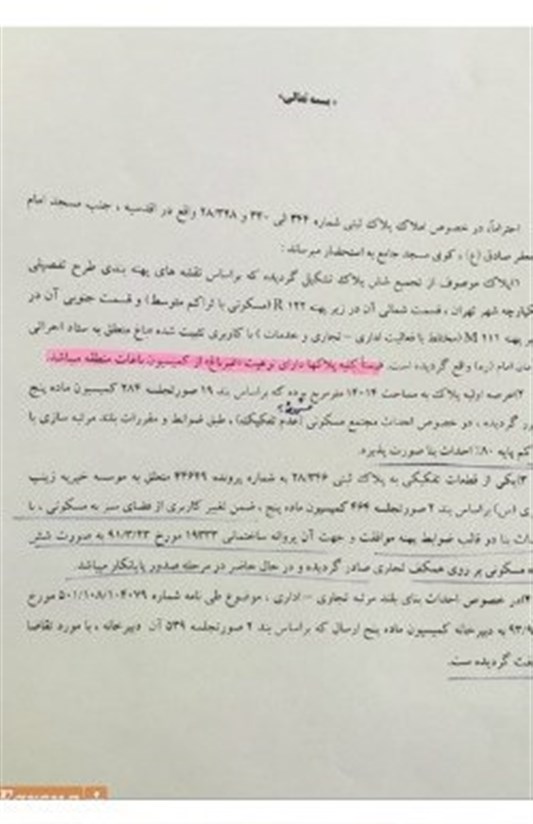 « بسمه تعالی»
احتراماً، در خصوص املاک پلاک ثبتی شماره ۳۴۴ الی ۳۴۰ و ۲۸/۳۲۸ واقع در اقدسیه ، جنب مسجد امام
جعفر صادق (ع) ، کوی مسجد جامع به استحضار میرساند :
۱)پلاک موصوف از تجمیع شش پلاک تشکیل گردیده که براساس نقشه های پهنه بندی طرح تفصیلی
یکپارچه شهر تهران ، قسمت شمالی آن در زیر پهنه R ۱۲۲ (مسکونی با تراکم متوسط) و قسمت جنوبی آن در
زیر پهنه M ۱۱۱ (مختلط با فعالیت اداری - تجاری و خدمات ) با کاربری تثبیت شده «باغ متعلق به ستاد اجرائی
فرمان امام (ره) واقع گردیده است. ضمناً کلیه پلاکها دارای نوعیت «غیرباغ» از کمیسیون باغات منطقه میباشد.
۲)عرصه اولیه پلاک به مساحت ۱۴۰۱۴ مترمربع بوده که براساس بند ۱۹ صورتجلسه ۲۸۴ کمیسیون ماده پنج
گردیده ، دو خصوص احداث مجتمع مسکونی (عدم تفکیک) ، طبق ضوابط و مقررات بلند مرتبه سازی با
تراکم پایه ۸۰٪ احداث بنا صورت پذیرد.
۳)یکی از قطعات تفکیکی به پلاک ثبتی ۲۸/۳۴۶ به شماره پرونده ۴۴۶۴۹ متعلق به موسسه خیریه زینب
(س) براساس بند ۲ صورتجلسه ۴۶۴ کمیسیون ماده پنج ، ضمن تغییر کاربری از فضای سبز به مسکونی ، با
احداث بنا دو قالب ضوابط پهنه موافقت و جهت آن پروانه ساختمانی ۱۹۳۳۳ مورخ ۹۱/۳/۲۳ به صورت شش
مسکونی بر روی همکف تجاری صادر گردیده و در حال حاضر در مرحله صدور پایانکار میباشد.
۴)در خصوص احداث بنای بلند مرتبه تجاری - اداری ، موضوع طی نامه شماره ۵۰۱/۱۰۸/۱۰۴۰۷۹ مورخ
به دبیرخانه کمیسیون ماده پنج ارسال که براساس بند ۲ صورتجلسه ۵۳۹ آن دبیرخانه ، با مورد تقاضا
گردیده ست.